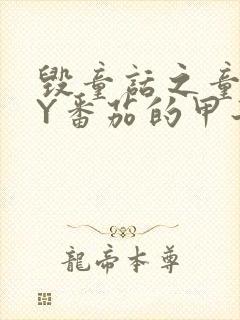 毁童话之童
Y番茄的甲
龍帝本尊